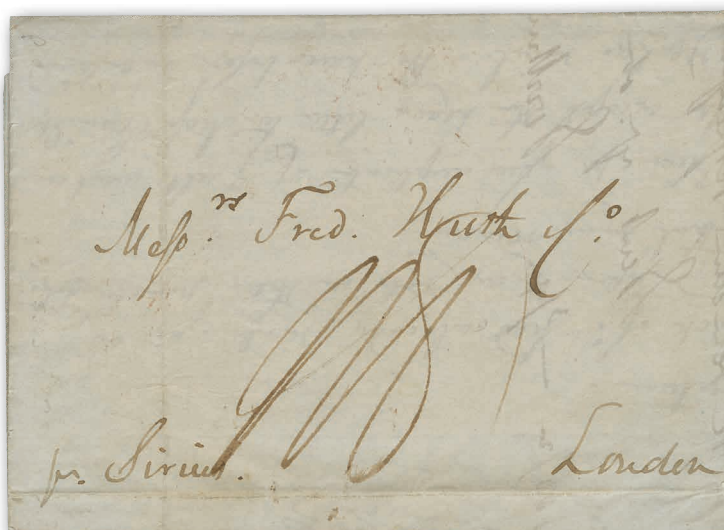 Mess.rs Fred. Huth Co.
pr. Sirius.
London